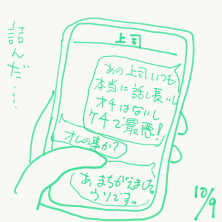 詰んだ…
上司
あの上司いつも
本当に話し長いし
オチはないし
ケチで最悪!
オレの事か?
あ、まちがえました
ウソです。
10/9